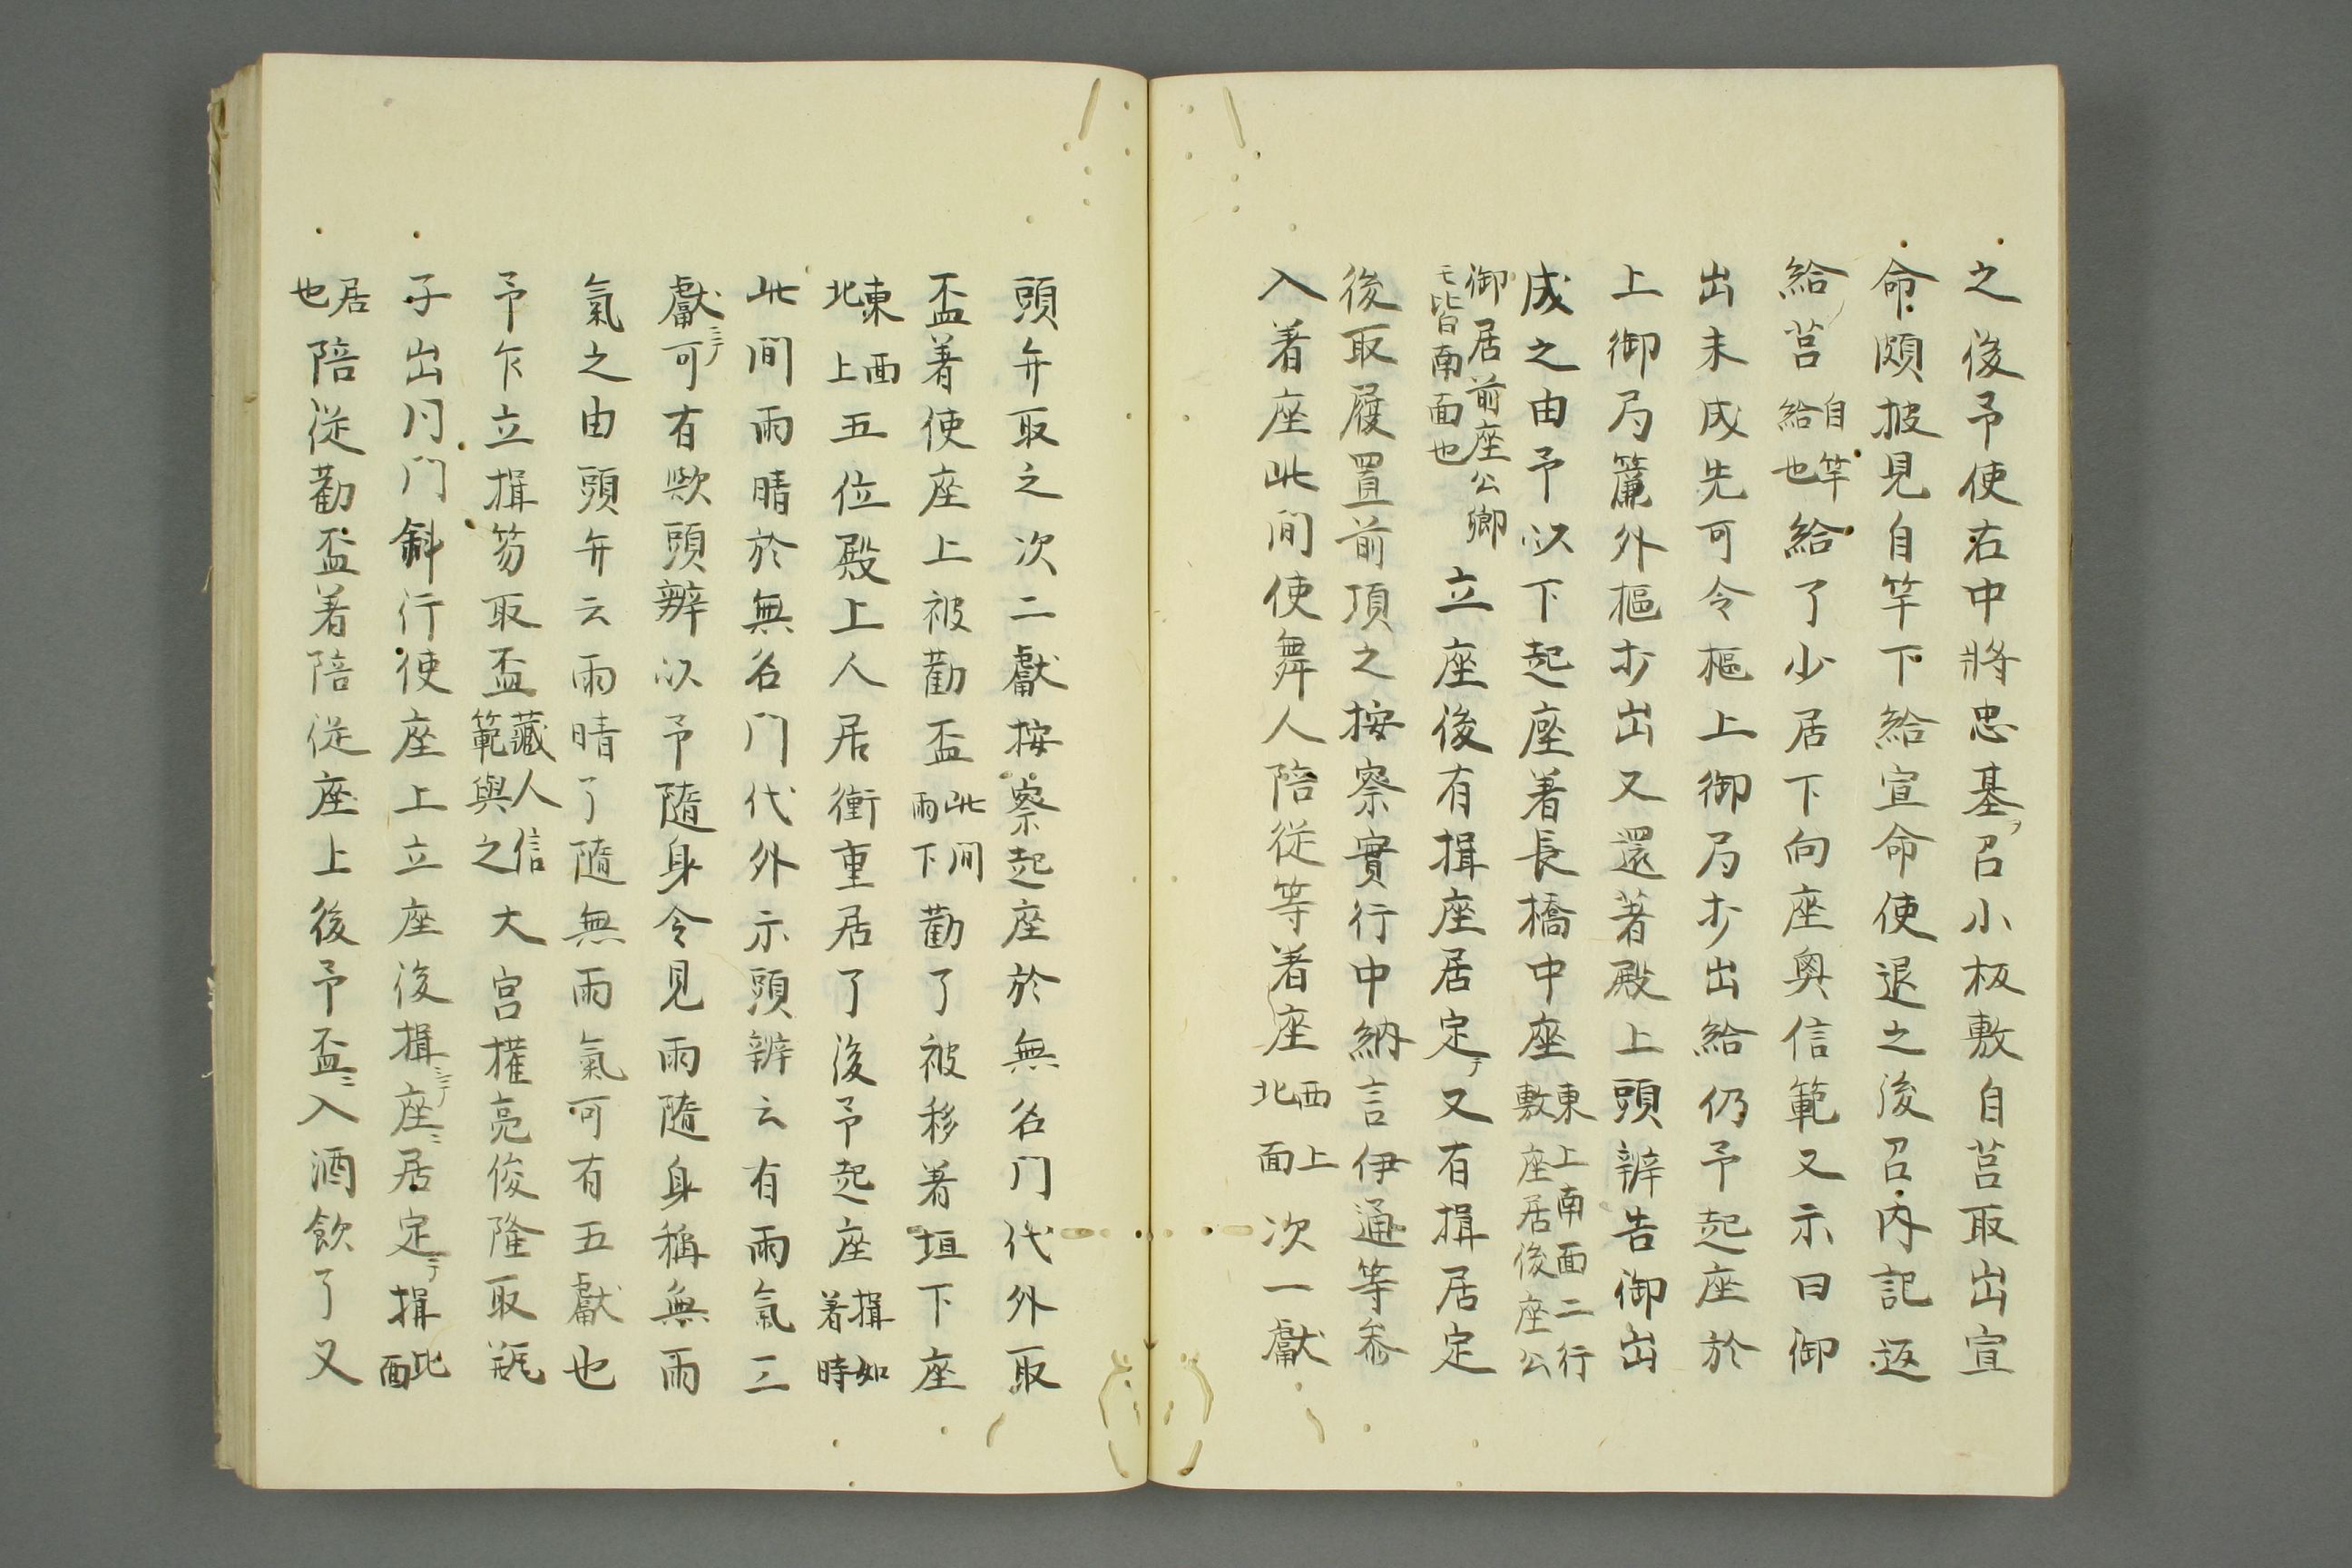 之後予使右中將忠基ヲ召小板敷自筥取出宣
命頗披見自竿下給宣命使退之後召内記返
給筥自竿給也給了少居下向座奥信範又示曰御
出未成先可令樞上御局方出給仍予起座於
上御局簾外樞方出又還著殿上頭辨告御出
成之由予以下起座着長橋中座東上南面二行敷座居後座公
御居前座公卿モ皆南面也立座後有揖座居定テ又有揖居定
後取履置前頃之按察實行中納言伊通等参
入着座此間使舞人陪従等着座西上北面次一獻
頭弁取之次二獻按察起座於無名門代外取
盃着使座上被勸盃此間雨下勸了被移着垣下座
東西北上五位殿上人居衝重居了後予起座揖如着時
此間雨晴於無名門代外示頭辨云有雨氣三
獻ニテ可有歟頭辨以予隨身令見雨隨身稱無雨
氣之由頭弁云雨晴了隨無雨氣可有五獻也
予乍立揖笏取盃藏人信範與之大宮權亮俊隆取瓶
子出月門斜行使座上立座後揖シテ座ニ居定テ揖北面
居也陪従勸盃着陪従座上後予盃ニ入酒飲了又